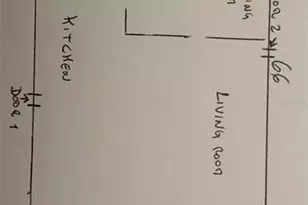 DOOR 2
66
KITCHEN
LIVING ROOM
DOOR 1